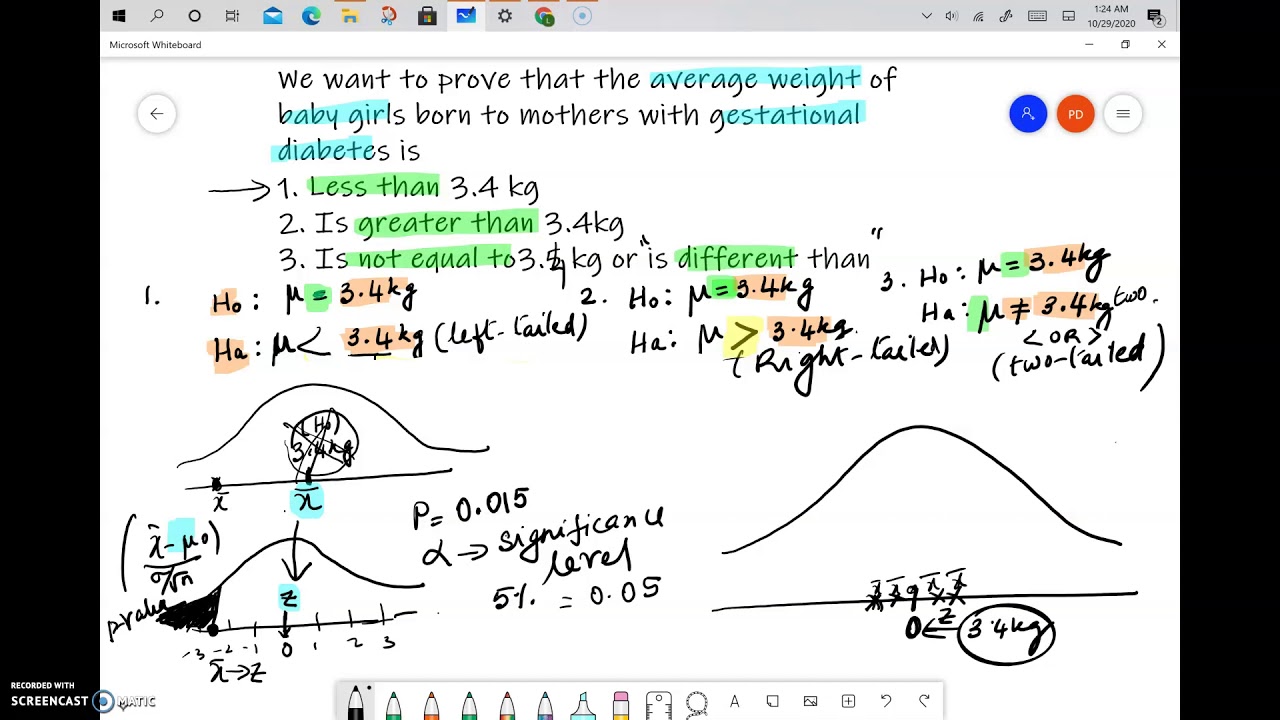 1:24 AM
10/29/2020
2
Microsoft Whiteboard
PD
We want to prove that the average weight of
baby girls born to mothers with gestational
diabetes is
1. Less than 3.4 kg
2. Is greater than 3.4kg
3. Is not equal to 3.4 kg or "is different than"
1. H₀: μ = 3.4kg
Ha: μ < 3.4kg (left-tailed)
2. H₀: μ = 3.4kg
Ha: μ > 3.4kg.
(Right-tailed)
3. H₀: μ = 3.4kg
Ha: μ ≠ 3.4kg two.
< OR >
(two-tailed)
(H₀)
3.4kg
x̄ x̄
P = 0.015
α → significance
level
5% = 0.05
(x̄ - μ₀)
σ/√n
p value
z
-3 -2 -1 0 1 2 3
x̄ → z
x̄ x̄ x̄ x̄
0 ← z 3.4kg
RECORDED WITH
SCREENCAST MATIC
A